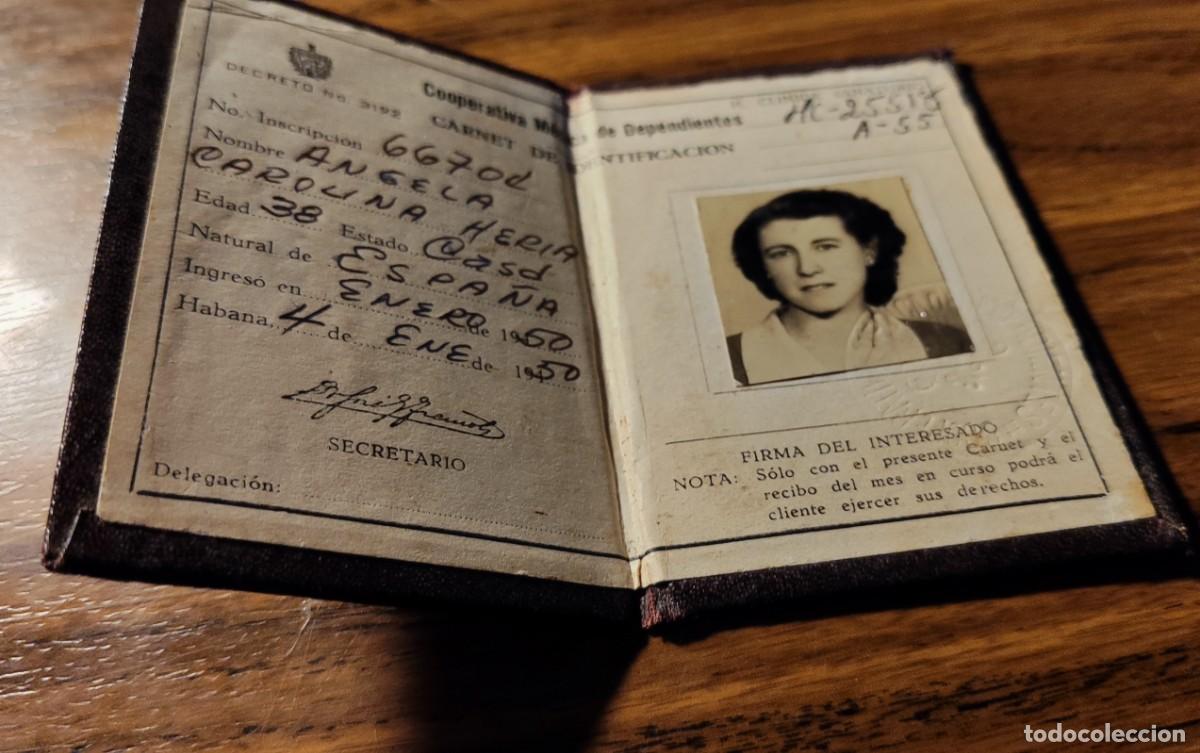 DECRETO No. 3192
Cooperativa
CARNET DE
No. Inscripción 66702
Nombre ANGELA
CAROLINA HERIA
Edad 38 Estado Casd
Natural de ESPAÑA
Ingresó en ENERO de 1950
Habana, 4 de ENE de 1950
SECRETARIO
Delegación:
HC-25515
de Dependientes
A-55
IDENTIFICACION
FIRMA DEL INTERESADO
NOTA: Sólo con el presente Carnet y el
recibo del mes en curso podrá el
cliente ejercer sus derechos.
todocoleccion